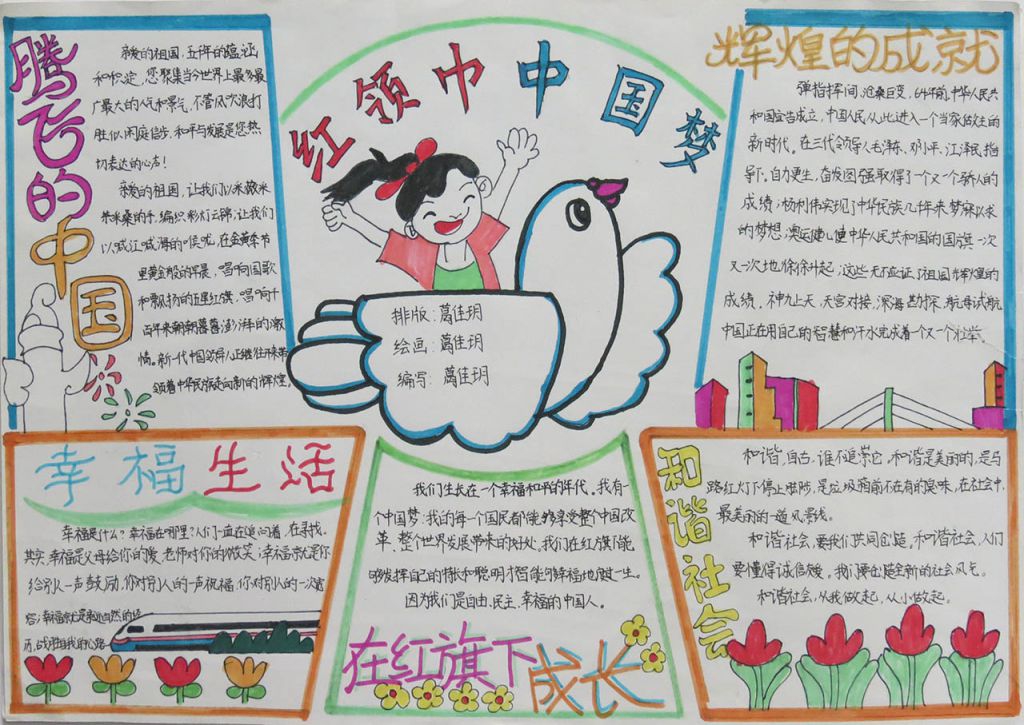 红领巾中国梦
排版：葛佳玥
绘画：葛佳玥
编写：葛佳玥
腾飞的中国
亲爱的祖国，五千年的
和积淀，您聚集当今世界上最多最
广最大的人气和景气，不管风吹浪打
胜似闲庭信步，和平与发展是您热
切表达的心声！
亲爱的祖国，让我们以
的手，编织彩灯云锦；让我们
以喊江喊海的喉咙，在金黄季节
里黄金般的早晨，唱响国歌
和飘扬的五星红旗，唱响千
百年来朝朝暮暮澎湃的激
情。新一代中国领导人正继往开来带
领着中华民族走向新的辉煌。
辉煌的成就
弹指挥间，沧桑巨变，64年前，中华人民共
和国宣告成立，中国人民从此进入一个当家做主的
新时代。在三代领导人毛泽东、邓小平、江泽民指
导下，自力更生，奋发图强取得了一个又一个骄人的
成绩；杨利伟实现了中华民族几千年来梦寐以求
的梦想；奥运健儿使中华人民共和国的国旗一次
又一次地徐徐升起，这些无不应证了祖国辉煌的
成绩。神九上天，天宫对接，深海勘探，航母试航
中国正在用自己的智慧和汗水完成着一个又一个壮举。
幸福生活
幸福是什么？幸福在哪里？人们一直在追问着，在寻找。
其实，幸福是父母给你的爱，老师对你的微笑；幸福亦就是你
给别人一声鼓励，你对别人的一声祝福，你对别人的一次宽
容；幸福就是
历，战胜自我的心路
我们生长在一个幸福和平的年代。我有
一个中国梦：我的每一个国民都能够享受整个中国改
革、整个世界发展带来的好处，我们在红旗下能
够发挥自己的特长和聪明才智能可幸福地过一生。
因为我们是自由、民主、幸福的中国人。
在红旗下成长
和谐社会
和谐，自古，谁不追崇它，和谐是美丽的，是马
路红灯下停止的脚步，是垃圾箱前不在有的臭味，在社会中，
最美丽的一道风景线。
和谐社会，要我们共同创造。和谐社会，人们
要懂得诚信友爱。我们要创造全新的社会风气。
和谐社会，从我做起，从小做起。